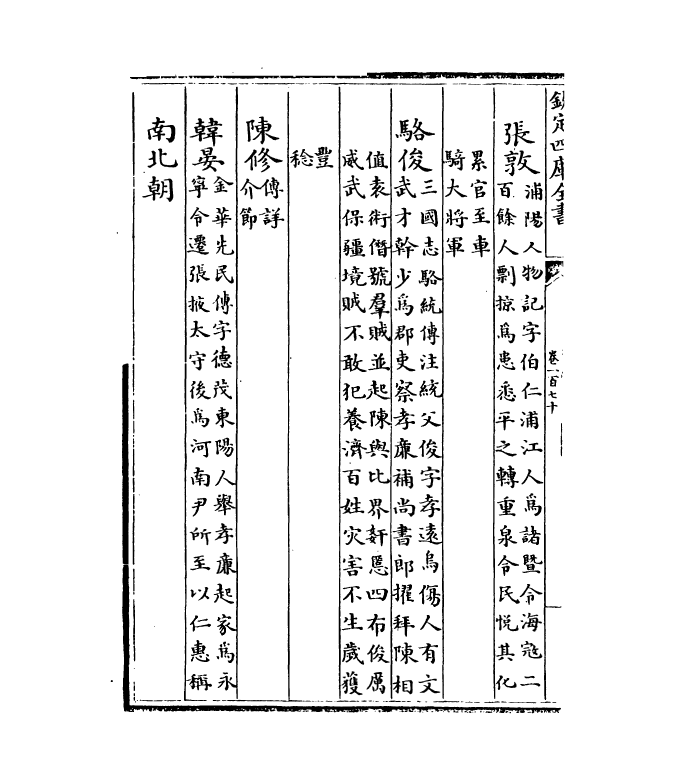 欽定四庫全書
卷一百七十
張敦
浦陽人物記字伯仁浦江人爲諸暨令海寇二
百餘人剽掠爲患悉平之轉重泉令民悅其化
累官至車
騎大將軍
駱俊
三國志駱統傳注統父俊字孝遠烏傷人有文
武才幹少爲郡吏察孝廉補尚書郎擢拜陳相
值袁術僭號羣賊並起陳與比界姧慝四布俊厲
威武保疆境賊不敢犯養濟百姓灾害不生歲獲
豐
稔
陳修
傳詳
介節
韓晏
金華先民傳字德茂東陽人舉孝廉起家爲永
寧令遷張掖太守後爲河南尹所至以仁惠稱
南北朝